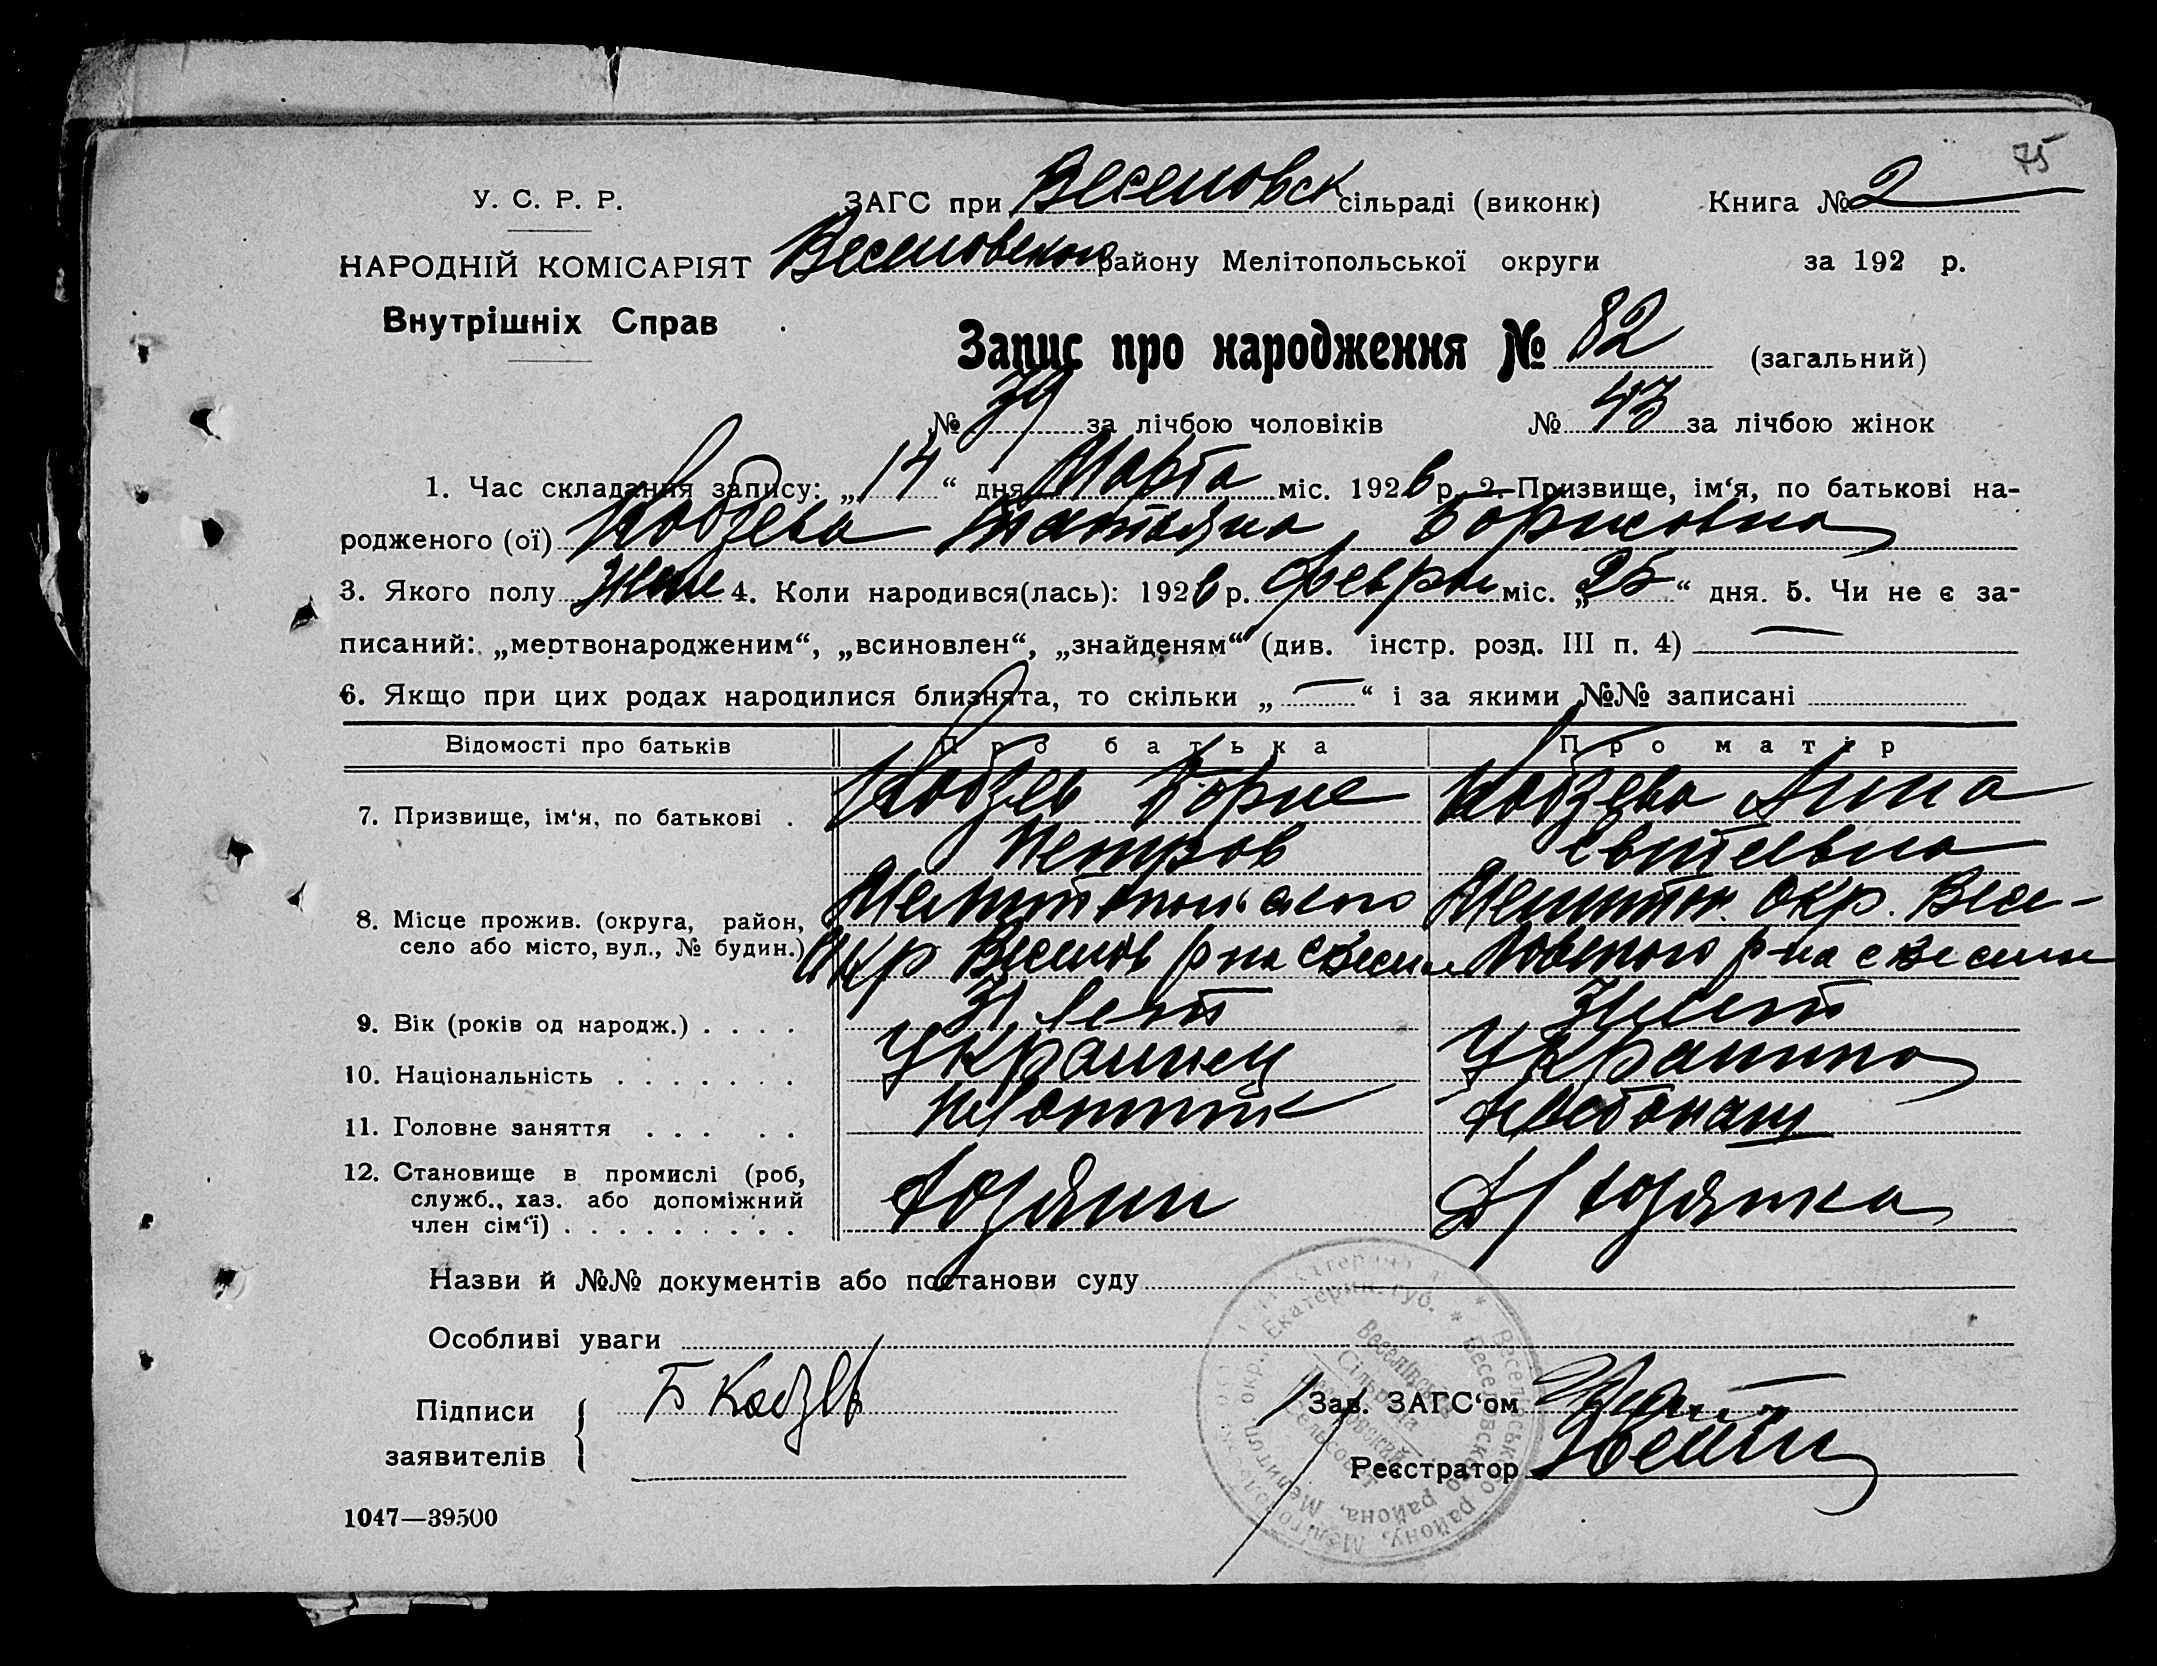 75
У. С. Р. Р.
ЗАГС при Веселовск сільраді (виконк) Книга № 2
НАРОДНІЙ КОМІСАРІЯТ Веселовского району Мелітопольської округи за 192 р.
Внутрішніх Справ
Запис про народження № 82 (загальний)
№ 39 за лічбою чоловіків № 43 за лічбою жінок
1. Час складання запису: „14“ дня Марта міс. 1926 р. 2. Призвище, ім‘я, по батькові на-
родженого (ої) Кобзева Татьяна Борисовна
3. Якого полу жен 4. Коли народився(лась): 1926 р. Феврал міс. „25“ дня. 5. Чи не є за-
писаний: „мертвонародженим“, „всиновлен“, „знайденям“ (див. інстр. розд. III п. 4) —
6. Якщо при цих родах народилися близнята, то скільки „—“ і за якими №№ записані
Відомості про батьків Про батька Про матір
7. Призвище, ім‘я, по батькові . Кобзев Борис Кобзева Анна
Петров
8. Місце прожив. (округа, район, Мелитопольского Мелитоп. окр. Весе-
село або місто, вул., № будин.) Окр Веселов р на с Весел ловского р-на с Весели
9. Вік (років од народж.) . . . . 31 лет лет
10. Національність . . . . . . . Украинец Украинка
11. Головне заняття . . . . . Плотник
12. Становище в промислі (роб,
служб., хаз. або допоміжний Хозяин хозяйка
член сім‘ї) . . . . . . . . .
Назви й №№ документів або постанови суду
Особливі уваги
Підписи Б Кобзев Зав. ЗАГС‘ом
заявителів Реєстратор
1047—39500